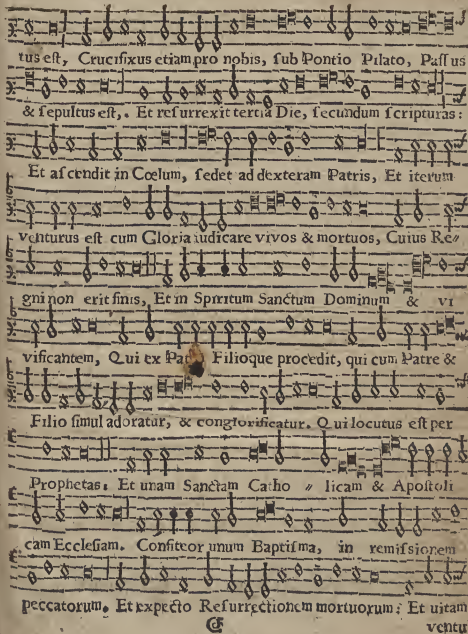 tus est, Crucifixus etiam pro nobis, sub Pontio Pilato, Passus
& sepultus est,. Et resurrexit tertia Die, secundum scripturas:
Et ascendit in Cœlum, sedet ad dexteram Patris, Et iterum
venturus est cum Gloria iudicare vivos & mortuos, Cuius Re〃
gni non erit finis, Et in Spiritum Sanctum Dominum & vi
vificantem, Qui ex Pa Filioque procedit, qui cum Patre &
Filio simul adoratur, & conglorificatur. Qui locutus est per
Prophetas: Et unam Sanctam Catho 〃 licam & Apostoli
cam Ecclesiam. Confiteor unum Baptisma, in remissionem
peccatorum. Et expecto Resurrectionem mortuorum: Et uitam
ventu